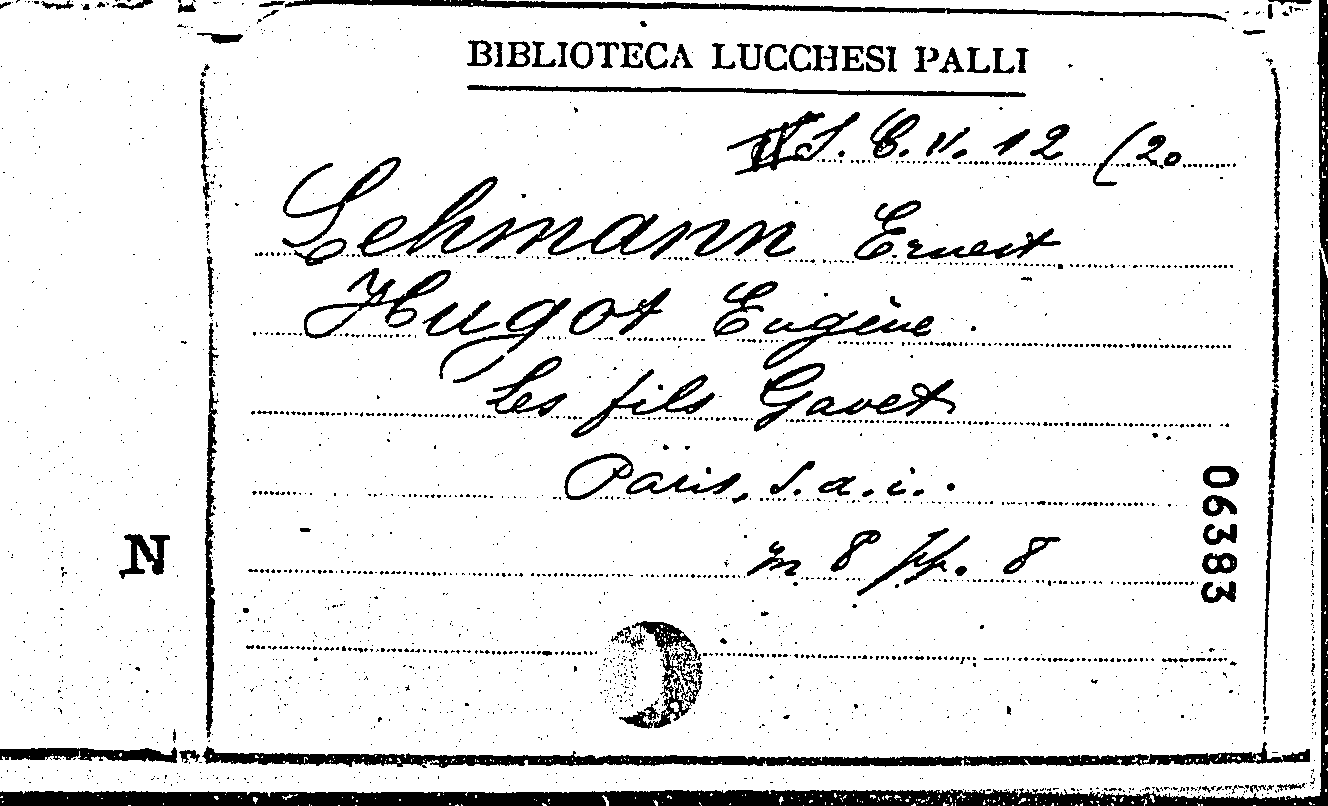 BIBLIOTECA LUCCHESI PALLI
S. C. V. 12 (20
Lehmann Ernest
Hugot Eugène
Les fils Gavet
Paris, s. a. i.
in 8 pp. 8
06383
N